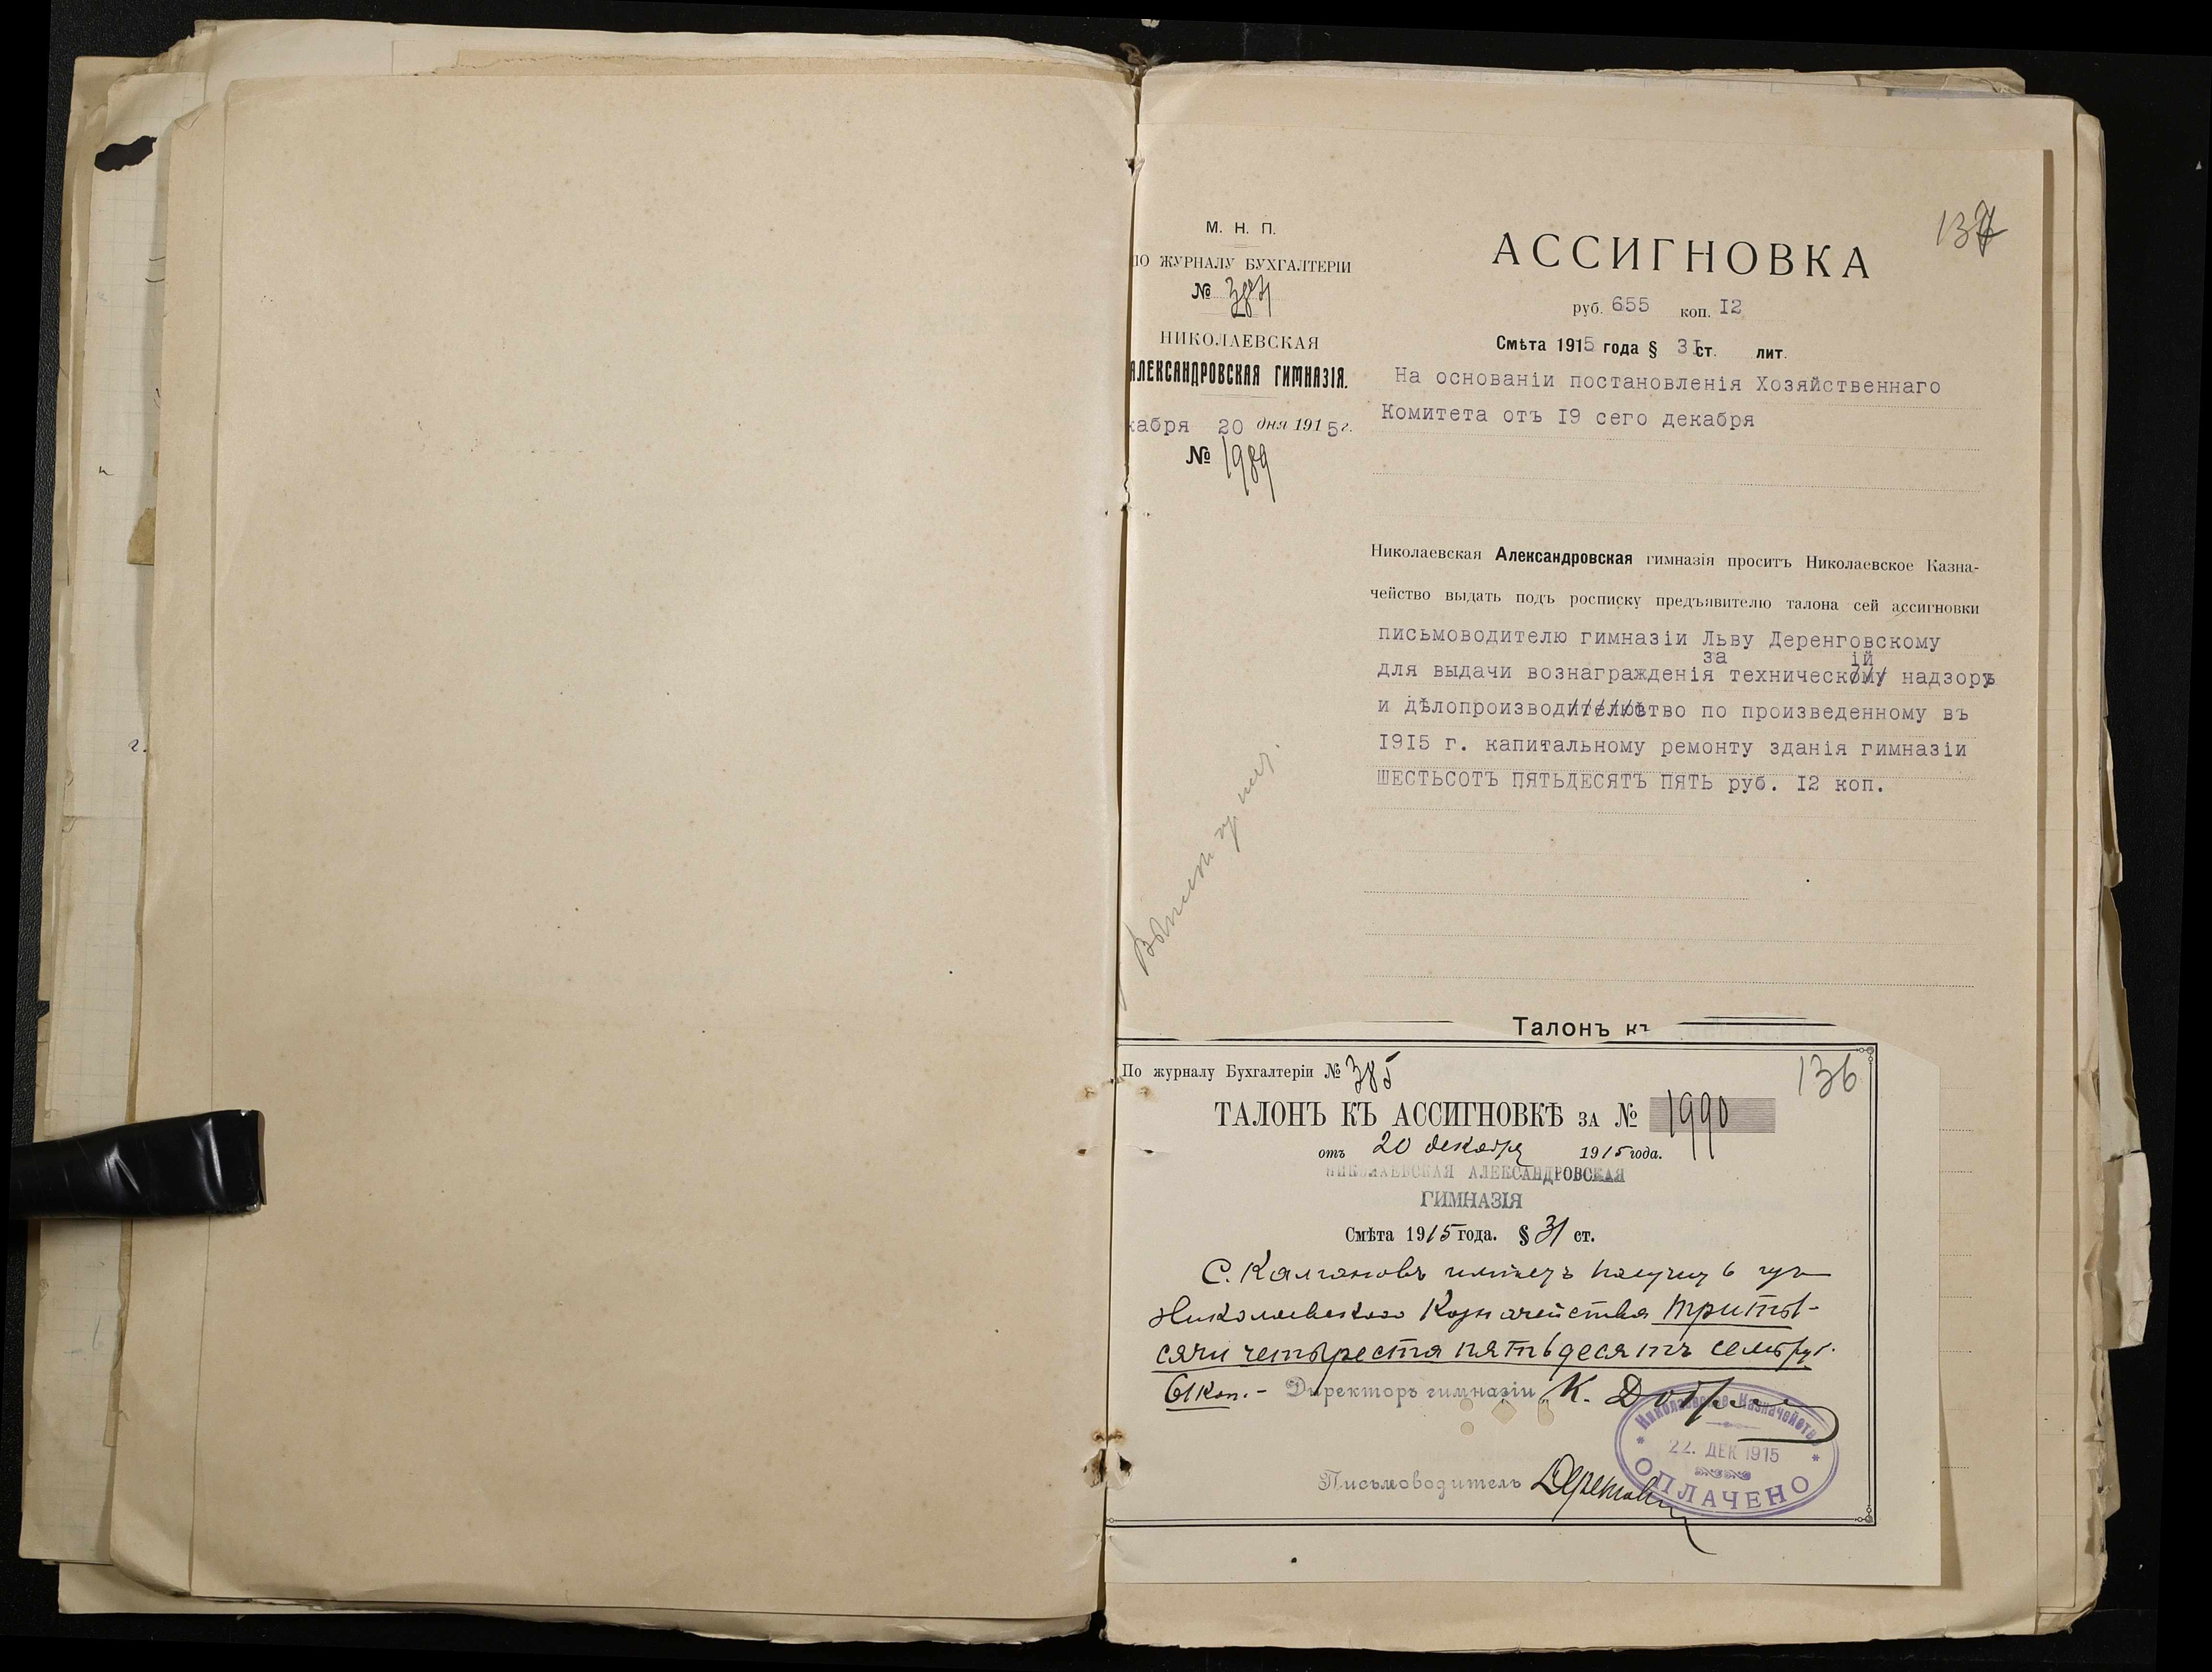 М. Н. П.
ПО ЖУРНАЛУ БУХГАЛТЕРІИ
№ 384
НИКОЛАЕВСКАЯ
АЛЕКСАНДРОВСКАЯ ГИМНАЗІЯ.
кабря 20 дня 1915 г.
№ 1989
137
АССИГНОВКА
руб. 655 коп. I2
Смѣта 1915 года § 3I ст. лит.
На основаніи постановленія Хозяйственнаго
Комитета отъ I9 сего декабря
Николаевская Александровская гимназія проситъ Николаевское Казна-
чейство выдать подъ росписку предъявителю талона сей ассигновки
письмоводителю гимназіи Льву Деренговскому
за ій
для выдачи вознагражденія техническому надзоръ
и дѣлопроизводительство по произведенному въ
I9I5 г. капитальному ремонту зданія гимназіи
ШЕСТЬСОТЪ ПЯТЬДЕСЯТЪ ПЯТЬ руб. I2 коп.
Талонъ къ
По журналу Бухгалтеріи № 385
136
ТАЛОНЪ КЪ АССИГНОВКѢ ЗА № 1990
отъ 20 декабря 1915 года.
НИКОЛАЕВСКАЯ АЛЕКСАНДРОВСКАЯ
ГИМНАЗІЯ
Смѣта 1915 года. § 31 ст.
С. Калгановъ имѣетъ получить изъ
Николаевскаго Казначейства три ты-
сячи четыреста пятьдесятъ семь руб.
61 коп. - Директоръ гимназіи К.
Николаевское Казначейство
22. ДЕК 1915
ОПЛАЧЕНО
Письмоводитель